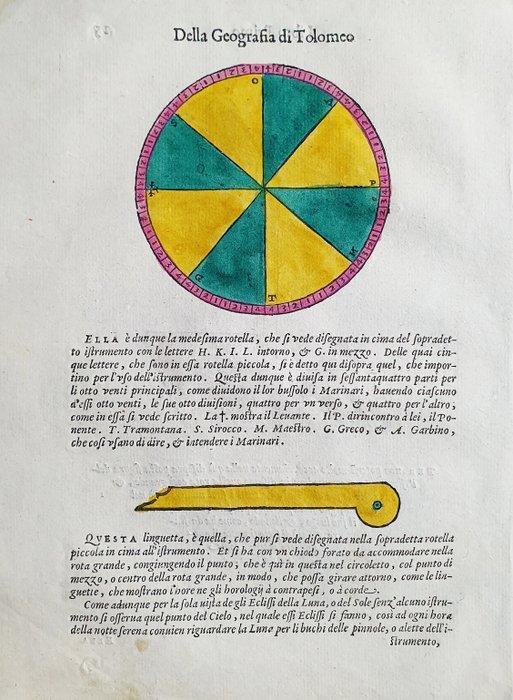 Della Geografia di Tolomeo
O
A
P
M
T
G
S
ELLA è dunque la medesima rotella, che si vede disegnata in cima del sopradet-
to istrumento con le lettere H. K. I. L. intorno, & G. in mezzo. Delle quai cin-
que lettere, che sono in essa rotella piccola, si è detto qui disopra quel, che impor-
tino per l'vso dell'istrumento. Questa dunque è diuisa in sessantaquattro parti per
li otto venti principali, come diuidono il lor bussolo i Marinari, hauendo ciascuno
d'essi otto venti, le sue otto diuisioni, quattro per vn verso, & quattro per l'altro,
come in essa si vede scritto. La †. mostra il Leuante. Il P. dirincontro à lei, il Po-
nente. T. Tramontana. S. Sirocco. M. Maestro. G. Greco, & A. Garbino,
che così vsano di dire, & intendere i Marinari.
QVESTA linguetta, è quella, che pur si vede disegnata nella sopradetta rotella
piccola in cima all'istrumento. Et si ha con vn chiodo forato da accommodare nella
rota grande, congiungendo il punto, che è quì in questa nel circoletto, col punto di
mezzo, o centro della rota grande, in modo, che possa girare attorno, come le lin-
guette, che mostrano l'hore ne gli horologij à contrapesi, o à corde.
Come adunque per la sola uista de gli Eclissi della Luna, o del Sole senz'alcuno istru-
mento si osserua quel punto del Cielo, nel quale essi Eclissi si fanno, così ad ogni hora
della notte serena conuien riguardare la Luna per li buchi delle pinnole, o alette dell'i-
strumento,